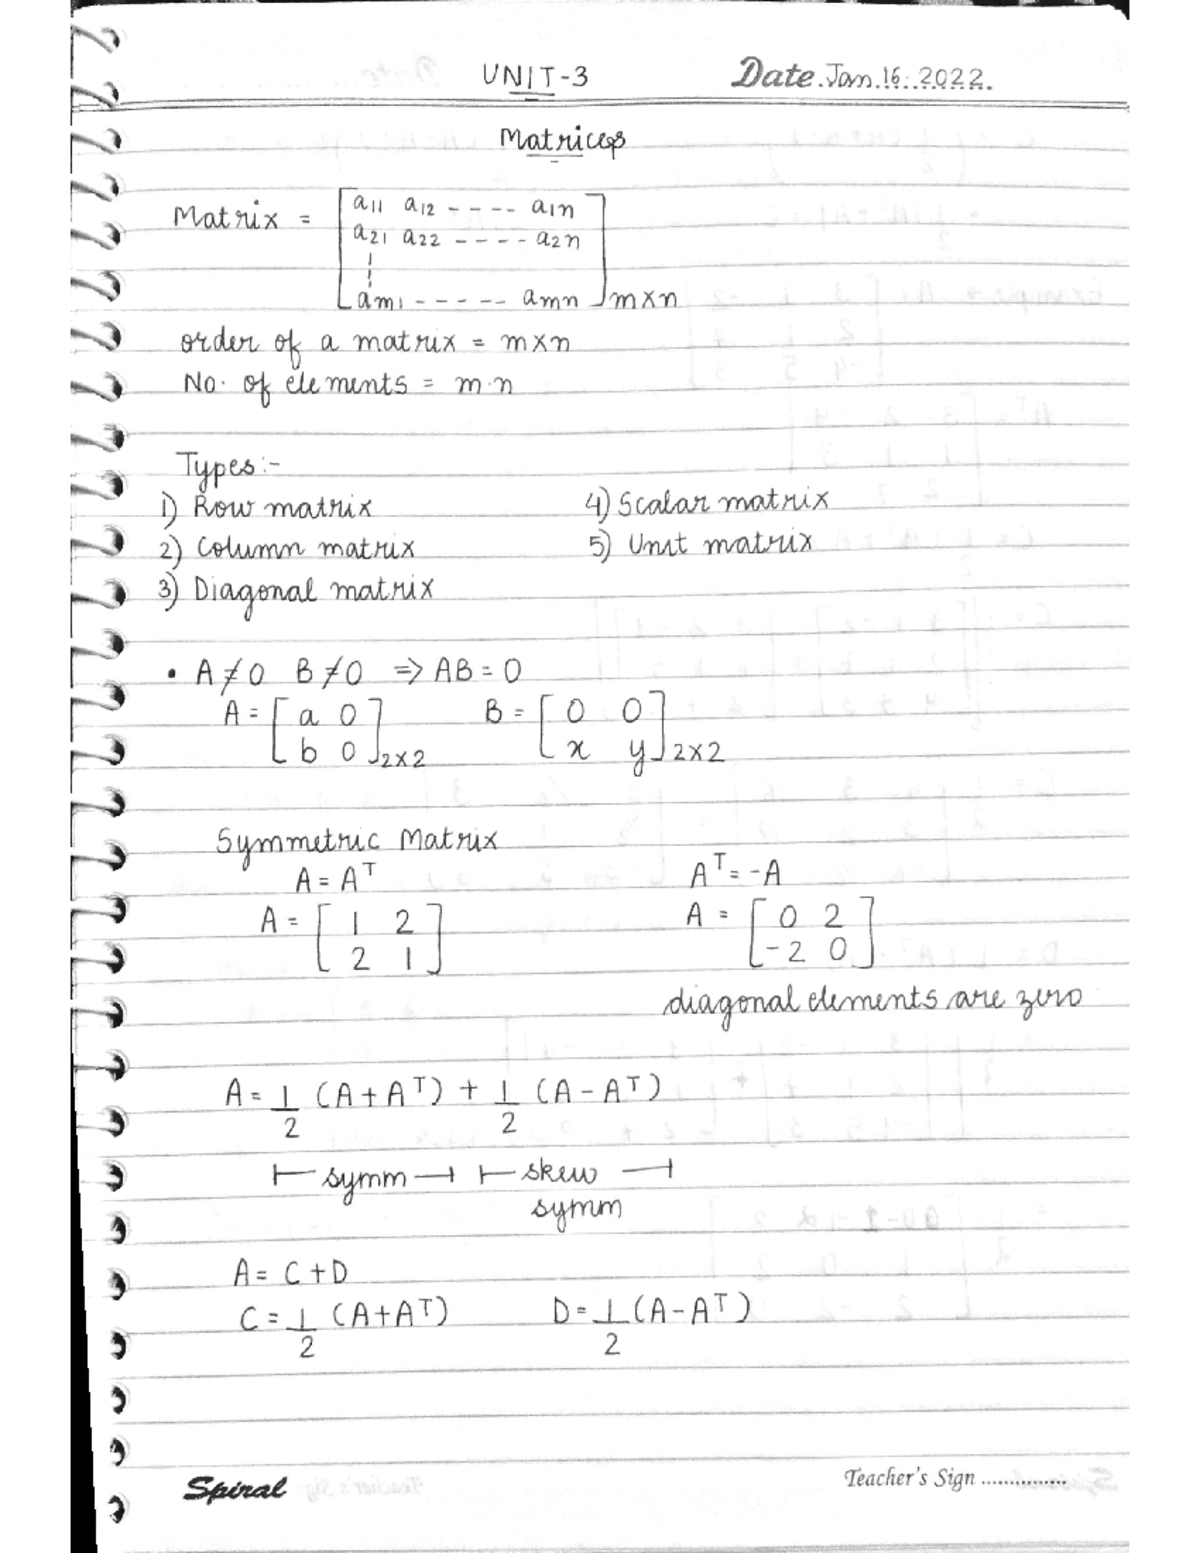 UNIT-3 Date.Jan.16.2022.
Matrices
Matrix = [ a11 a12 ---- a1n
a21 a22 ---- a2n
¦
am1 ----- amn ] m×n
order of a matrix = m×n
No. of elements = m·n
Types:-
1) Row matrix 4) Scalar matrix
2) Column matrix 5) Unit matrix
3) Diagonal matrix
• A≠0 B≠0 => AB=0
A = [ a 0 B = [ 0 0
b 0 ] 2×2 x y ] 2×2
Symmetric Matrix
A = Aᵀ Aᵀ = -A
A = [ 1 2 A = [ 0 2
2 1 ] -2 0 ]
diagonal elements are zero
A = 1/2 (A+Aᵀ) + 1/2 (A-Aᵀ)
⊢ symm ⊣ ⊢ skew ⊣
symm
A = C+D
C = 1/2 (A+Aᵀ) D = 1/2 (A-Aᵀ)
Spiral Teacher's Sign ...............